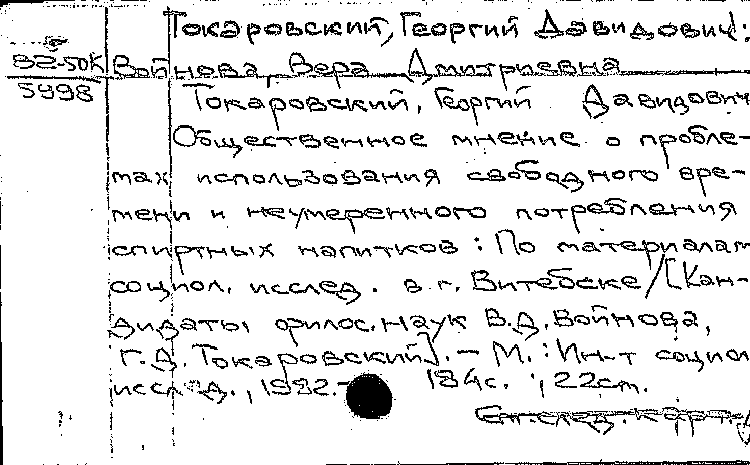 Токаровский, Георгий Давидович;
82-50К Войнова, Вера Дмитриевна
5998 Токаровский, Георгий Давидович
Общественное мнение о пробле-
мах использования свободного вре-
мени и неумеренного потребления
спиртных напитков : По материалам
социол. исслед. в г. Витебске / [Кан-
дидаты филос. наук В.Д. Войнова,
Г.Д. Токаровский]. - М. : Ин-т социол
исслед., 1982. - 184с. ; 22см.
См. след. карт.